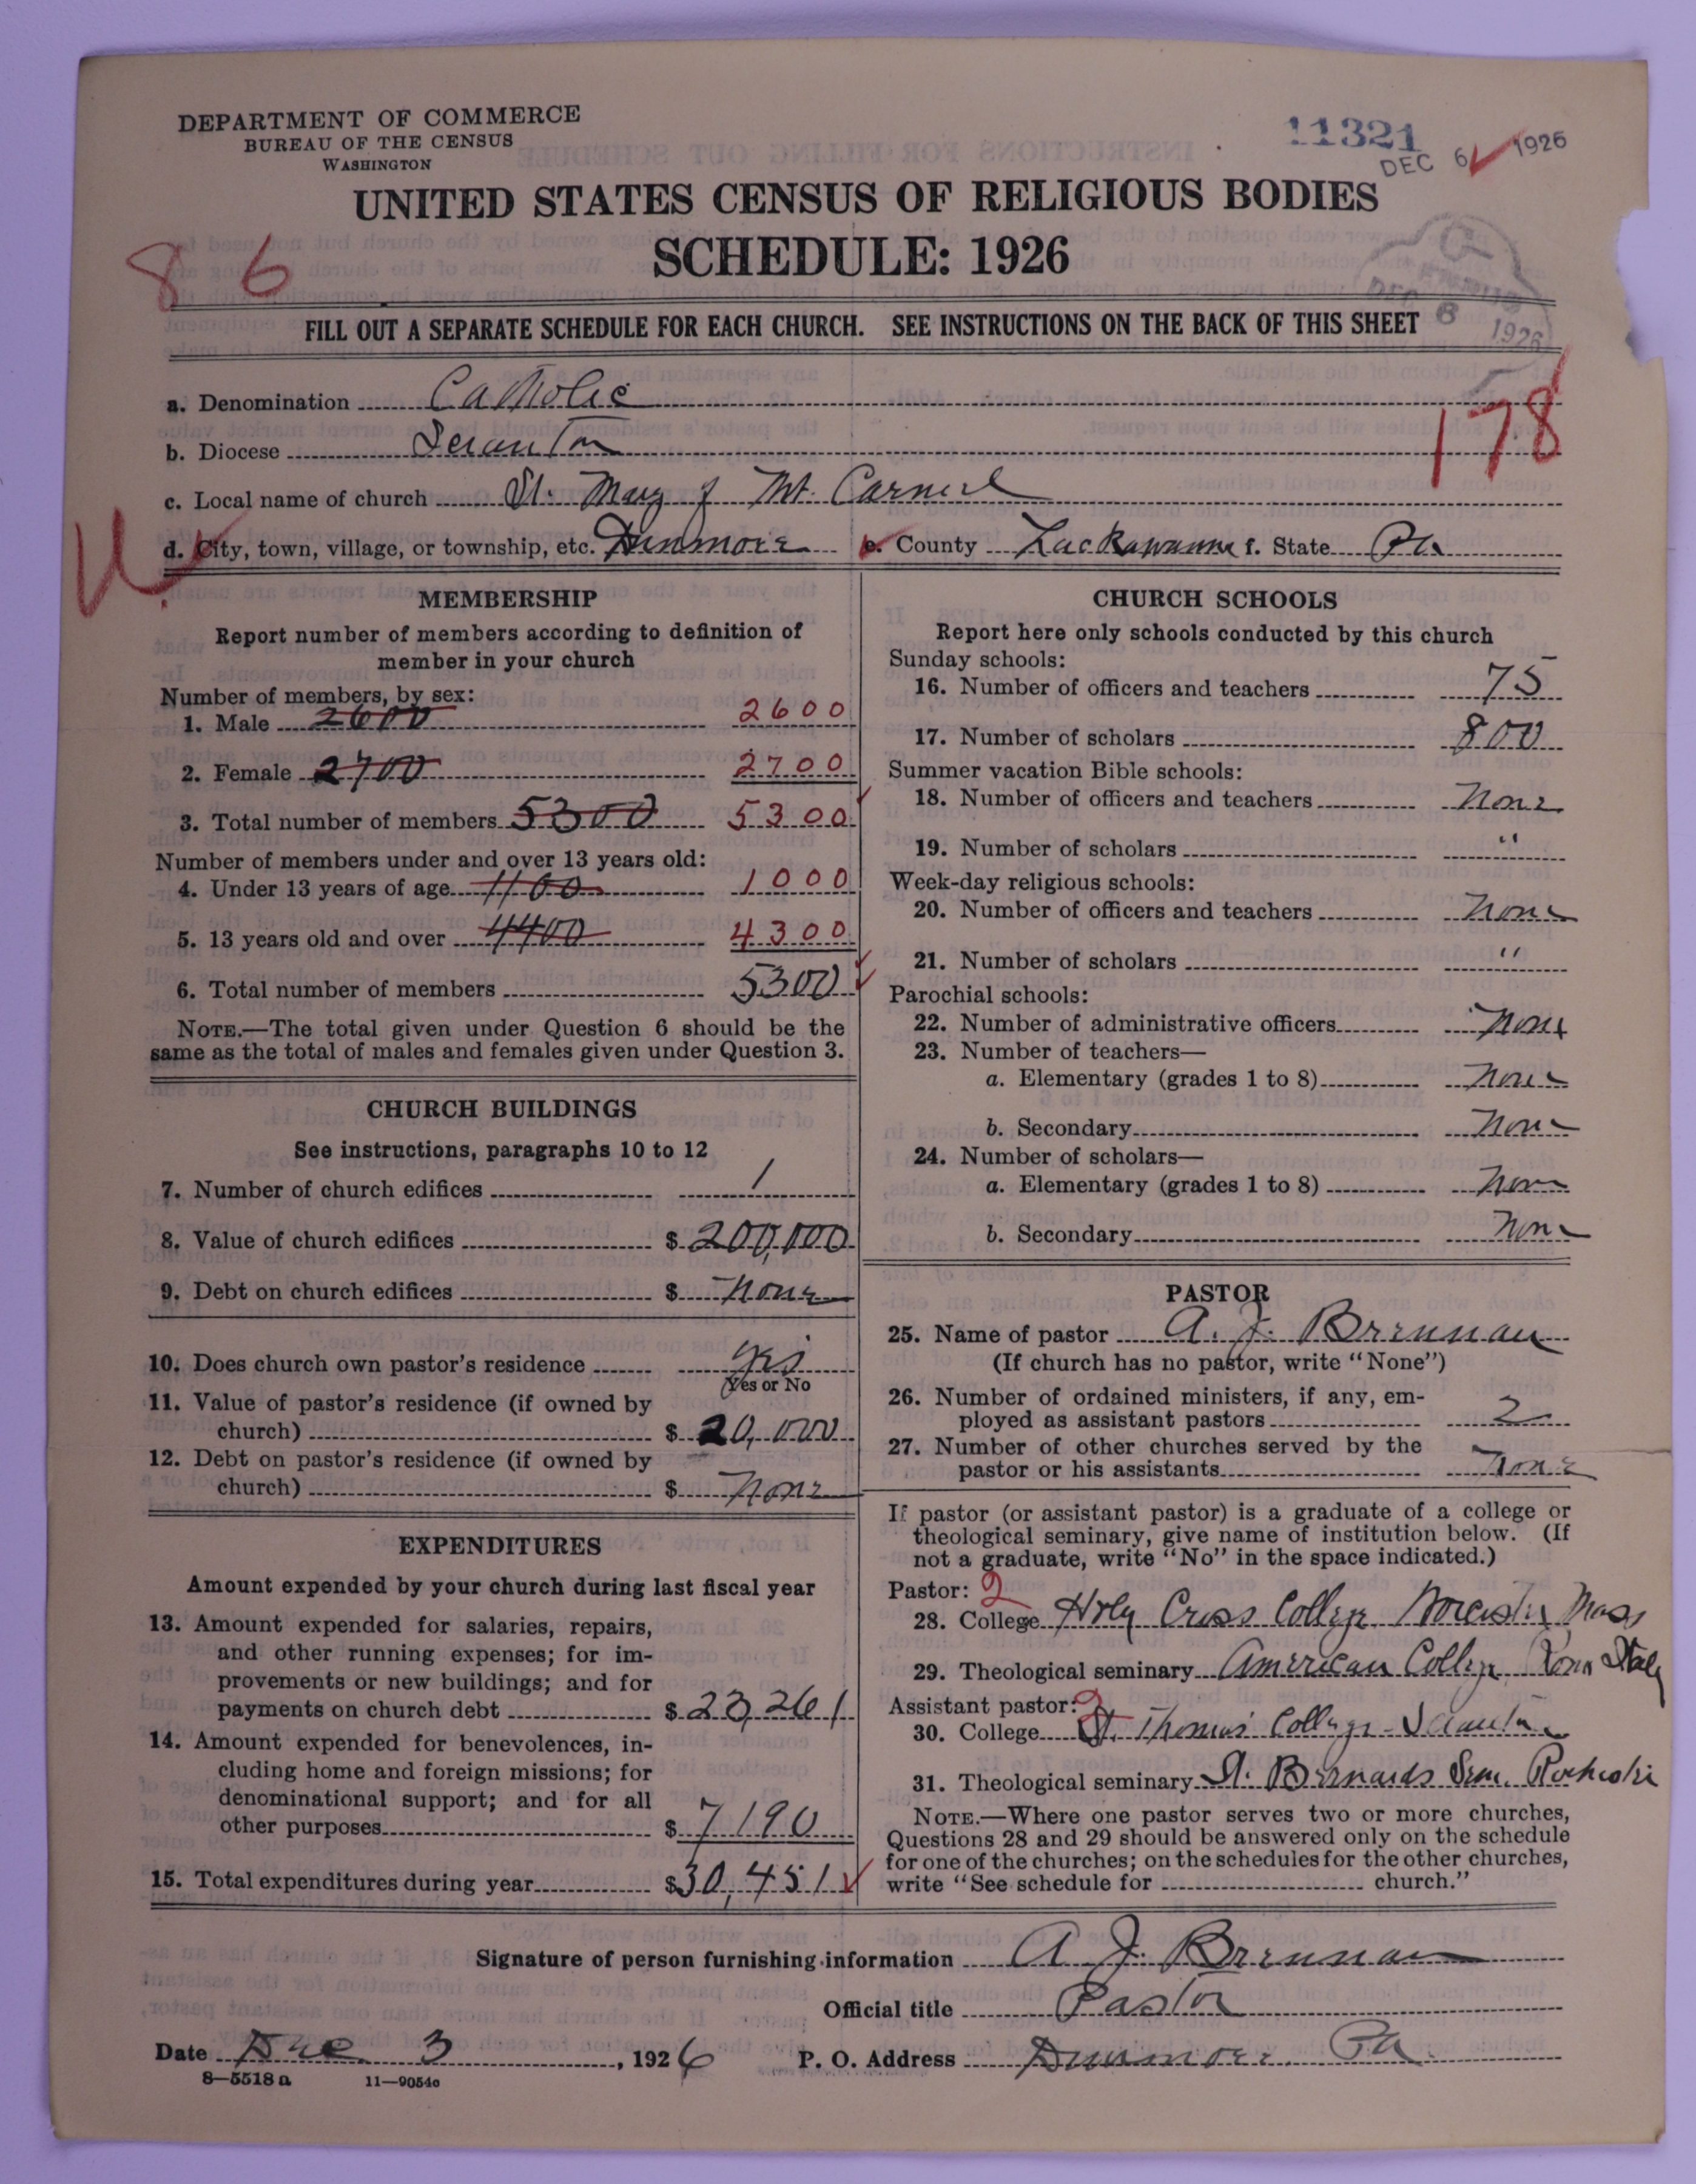 DEPARTMENT OF COMMERCE
BUREAU OF THE CENSUS
WASHINGTON
11321
DEC 6 1926
UNITED STATES CENSUS OF RELIGIOUS BODIES
SCHEDULE: 1926
86
DEC 6 1926
FILL OUT A SEPARATE SCHEDULE FOR EACH CHURCH. SEE INSTRUCTIONS ON THE BACK OF THIS SHEET
178
a. Denomination Catholic
b. Diocese Scranton
c. Local name of church St. Mary of Mt. Carmel
d. City, town, village, or township, etc. Dunmore e. County Lackawanna f. State Pa
MEMBERSHIP
Report number of members according to definition of
member in your church
Number of members, by sex:
1. Male 2600 2600
2. Female 2700 2700
3. Total number of members 5300 5300
Number of members under and over 13 years old:
4. Under 13 years of age 1100 1000
5. 13 years old and over 4400 4300
6. Total number of members 5300
NOTE.—The total given under Question 6 should be the
same as the total of males and females given under Question 3.
CHURCH BUILDINGS
See instructions, paragraphs 10 to 12
7. Number of church edifices 1
8. Value of church edifices $ 200,000
9. Debt on church edifices $ None
10. Does church own pastor's residence Yes
Yes or No
11. Value of pastor's residence (if owned by
church) $ 20,000
12. Debt on pastor's residence (if owned by
church) $ None
EXPENDITURES
Amount expended by your church during last fiscal year
13. Amount expended for salaries, repairs,
and other running expenses; for im-
provements or new buildings; and for
payments on church debt $ 23,261
14. Amount expended for benevolences, in-
cluding home and foreign missions; for
denominational support; and for all
other purposes $ 7190
15. Total expenditures during year $ 30,451
CHURCH SCHOOLS
Report here only schools conducted by this church
Sunday schools:
16. Number of officers and teachers 75
17. Number of scholars 800
Summer vacation Bible schools:
18. Number of officers and teachers None
19. Number of scholars "
Week-day religious schools:
20. Number of officers and teachers None
21. Number of scholars "
Parochial schools:
22. Number of administrative officers None
23. Number of teachers—
a. Elementary (grades 1 to 8) None
b. Secondary None
24. Number of scholars—
a. Elementary (grades 1 to 8) None
b. Secondary None
PASTOR
25. Name of pastor A. J. Brennan
(If church has no pastor, write "None")
26. Number of ordained ministers, if any, em-
ployed as assistant pastors 2
27. Number of other churches served by the
pastor or his assistants None
If pastor (or assistant pastor) is a graduate of a college or
theological seminary, give name of institution below. (If
not a graduate, write "No" in the space indicated.)
Pastor: 2
28. College Holy Cross College Worcester Mass
29. Theological seminary American College Rome Italy
Assistant pastor: 2
30. College St. Thomas' College Scranton
31. Theological seminary St. Bernards Sem. Rochester
NOTE.—Where one pastor serves two or more churches,
Questions 28 and 29 should be answered only on the schedule
for one of the churches; on the schedules for the other churches,
write "See schedule for church."
Signature of person furnishing information A J. Brennan
Official title Pastor
Date Dec 3, 1926 P. O. Address Dunmore Pa.
8—5518a 11—9054c